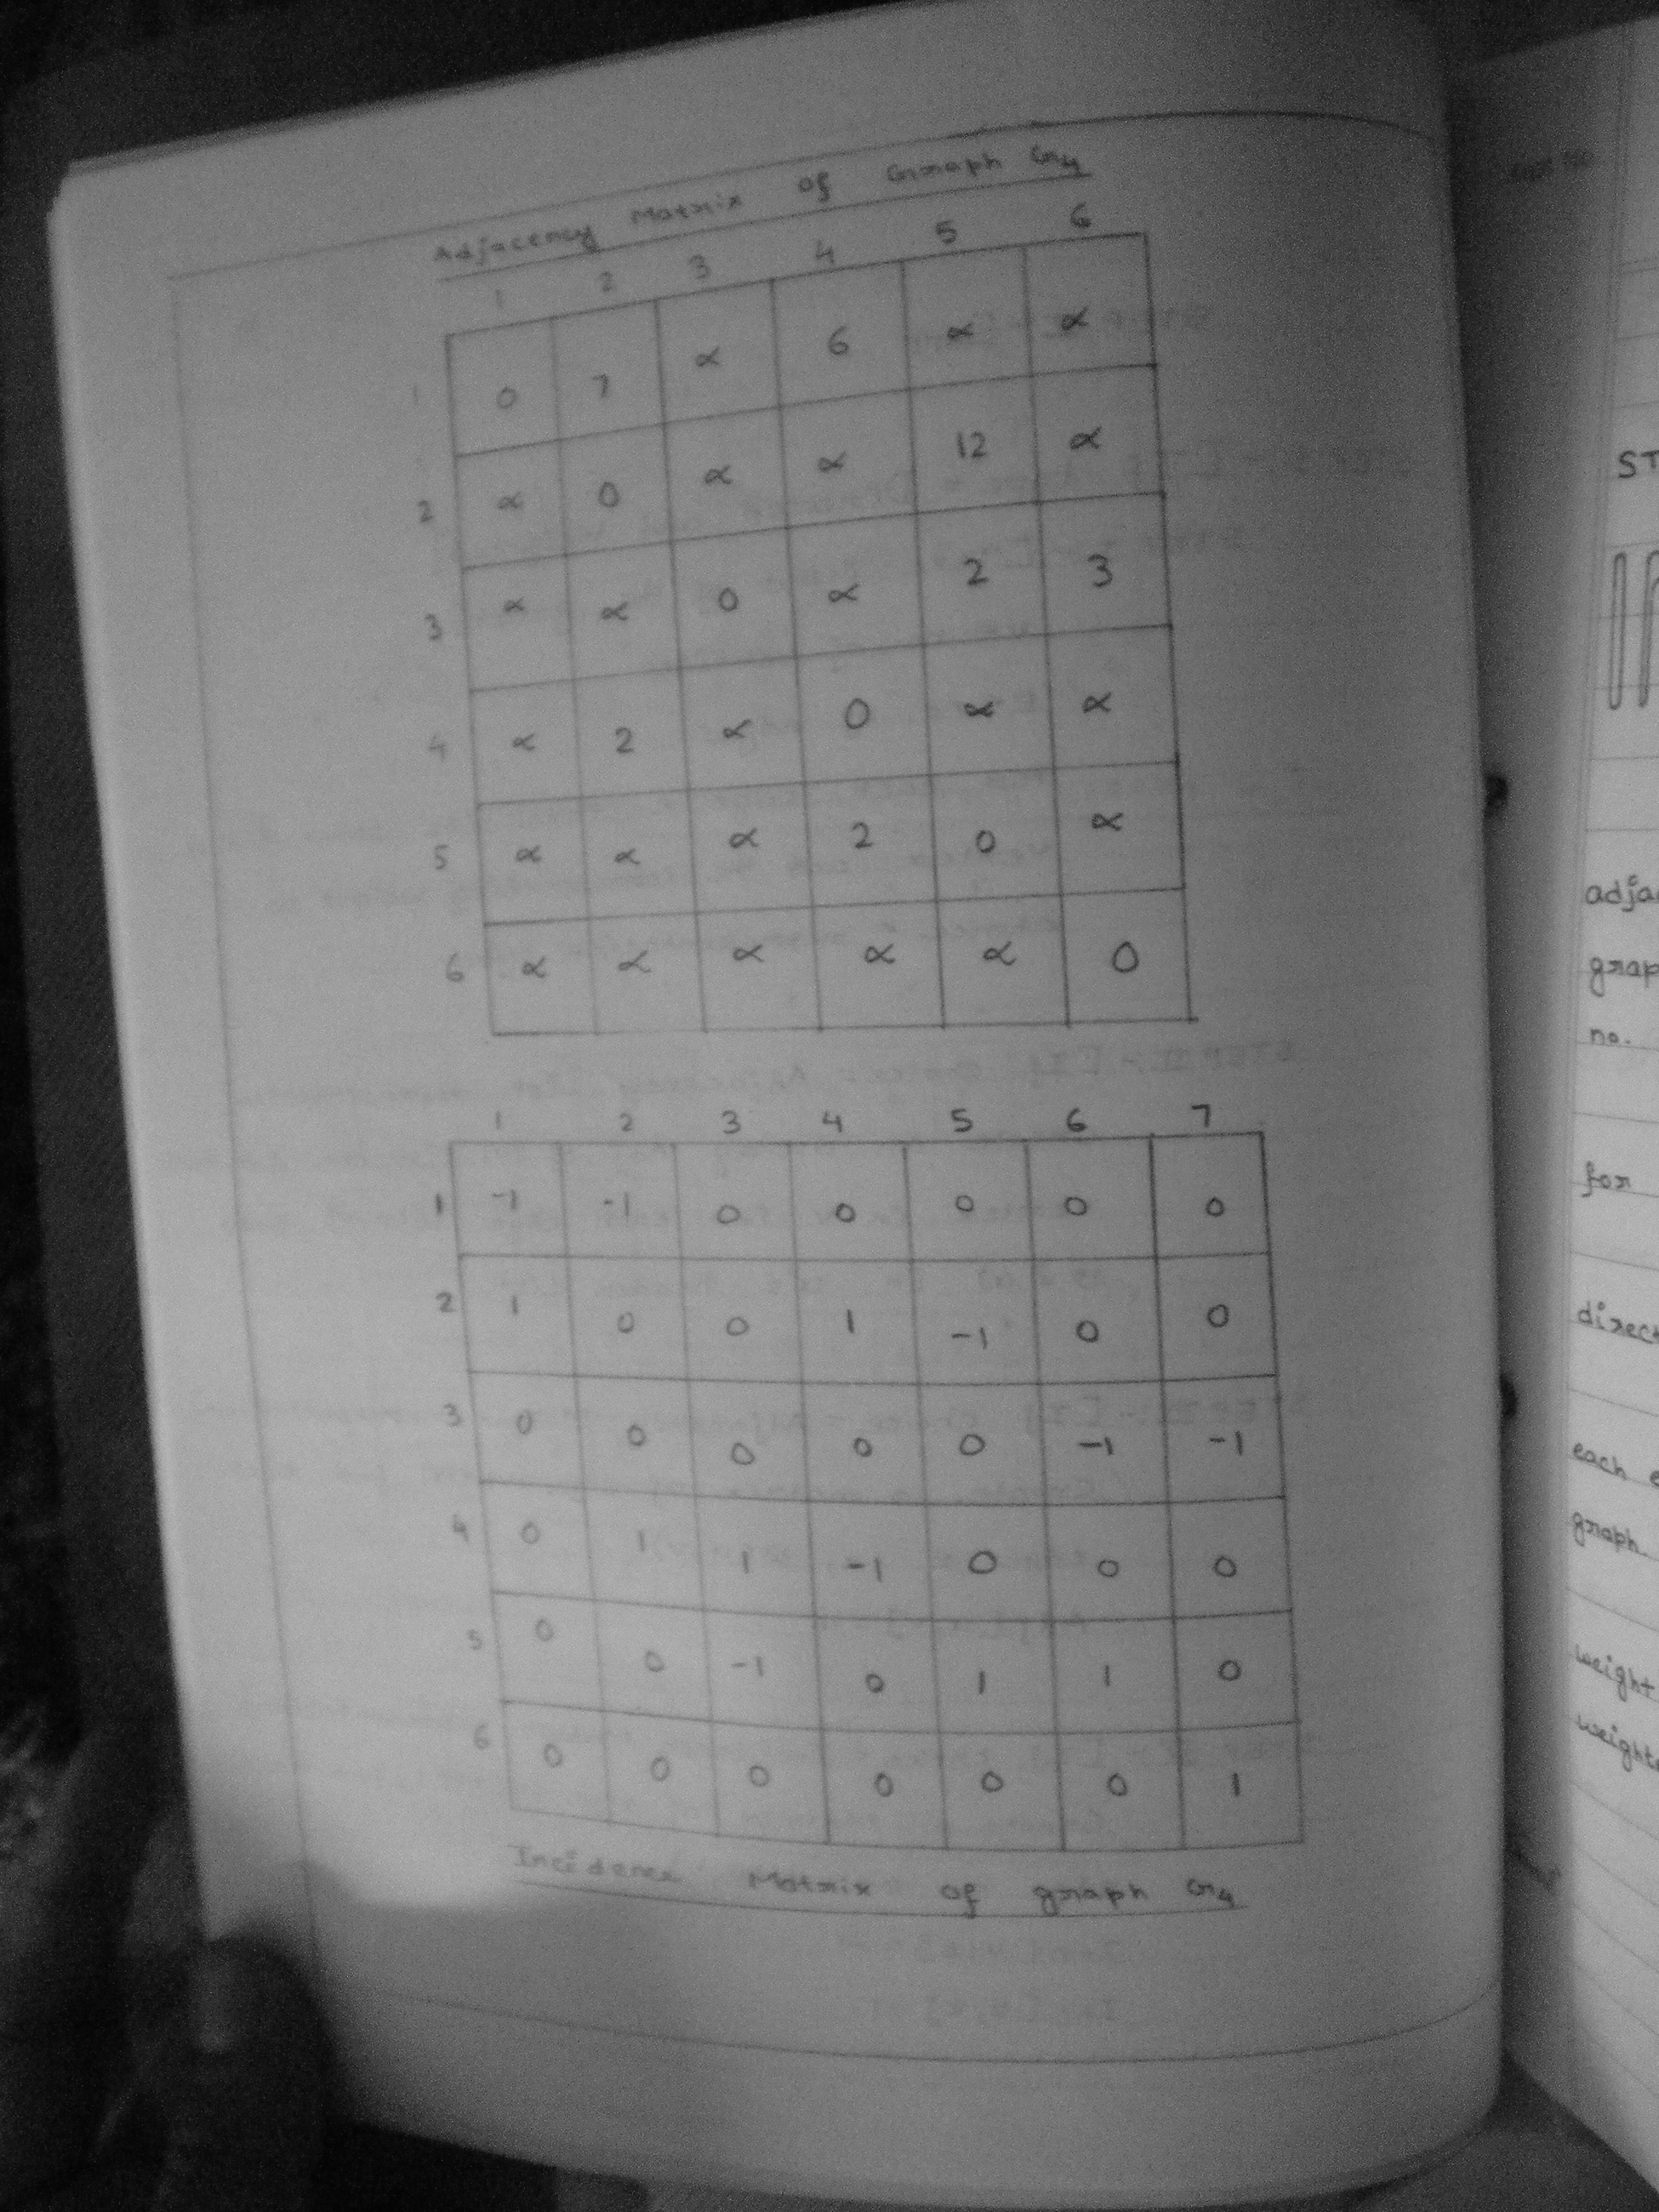 Adjacency Matrix of Graph G4
1 2 3 4 5 6
1 0 7 ∝ 6 ∝ ∝
2 ∝ 0 ∝ ∝ 12 ∝
3 ∝ ∝ 0 ∝ 2 3
4 ∝ 2 ∝ 0 ∝ ∝
5 ∝ ∝ ∝ 2 0 ∝
6 ∝ ∝ ∝ ∝ ∝ 0
1 2 3 4 5 6 7
1 -1 -1 0 0 0 0 0
2 1 0 0 1 -1 0 0
3 0 0 0 0 0 -1 -1
4 0 1 1 -1 0 0 0
5 0 0 -1 0 1 1 0
6 0 0 0 0 0 0 1
Incidence Matrix of graph G4
ST
adja
grap
no.
for
direct
each e
graph.
weight
weighte